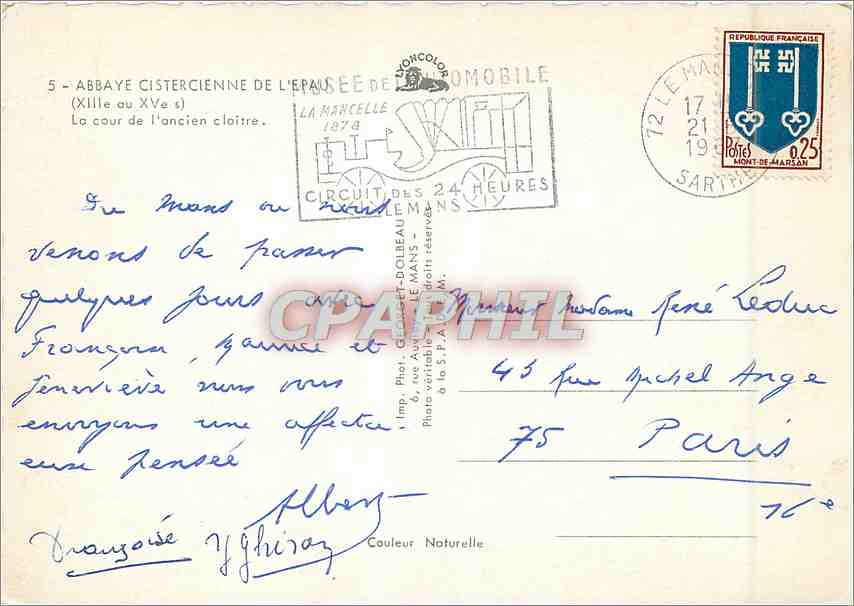 5 - ABBAYE CISTERCIENNE DE L'EPAU
(XIIIe au XVe s)
La cour de l'ancien cloître.
LYONCOLOR
MUSÉE DE L'AUTOMOBILE
LA MANCELLE
1878
CIRCUIT DES 24 HEURES
LE MANS
72 LE MANS
17
21
19
SARTHE
REPUBLIQUE FRANÇAISE
POSTES 0,25
MONT-DE-MARSAN
Du Mans ou nous
venons de passer
quelques jours avec
Françoise, Maurice et
Geneviève nous vous
envoyons une affectu
euse pensée
Albert
Françoise
Imp. Phot. GEORGET-DOLBEAU
6, rue Auvray LE MANS -
Photo véritable droits réservés
à la S.P.A.D.E.M.
CPAPHIL
Monsieur Madame René Leduc
45 Rue Michel Ange
75 Paris
16e
Couleur Naturelle